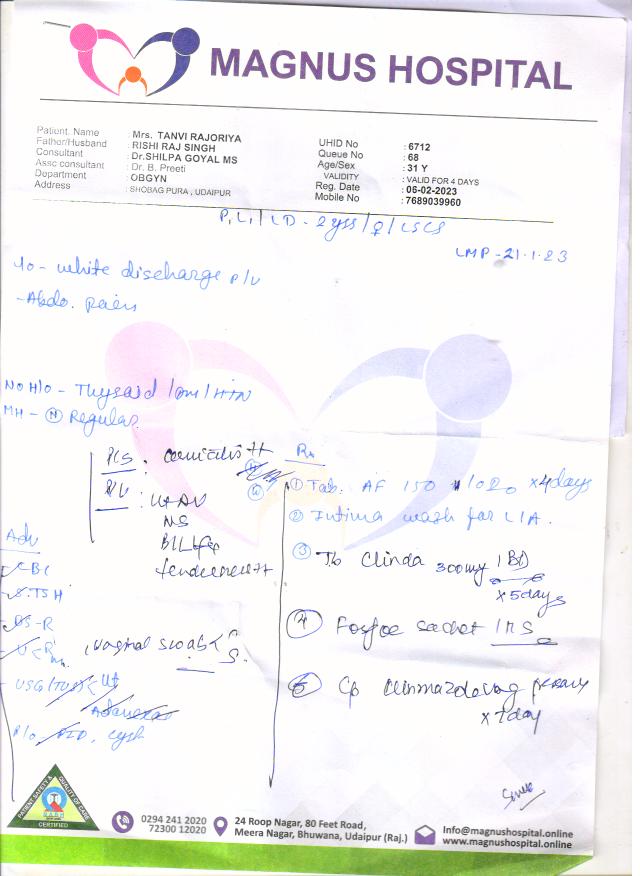 MAGNUS HOSPITAL
Patient. Name : Mrs. TANVI RAJORIYA
Father/Husband : RISHI RAJ SINGH
Consultant : Dr.SHILPA GOYAL MS
Assc consultant : Dr. B. Preeti
Department : OBGYN
Address : SHOBAG PURA , UDAIPUR
UHID No : 6712
Queue No : 68
Age/Sex : 31 Y
VALIDITY : VALID FOR 4 DAYS
Reg. Date : 06-02-2023
Mobile No : 7689039960
P1L1 / LD - 2 yrs / ♀ / LSCS
LMP - 21.1.23
white discharge P/V
- Abdo. pain
NO H/O - Thyroid / DM / HTN
MH - (N) Regular
P/S : cervicitis ++
P/V : UT AV
NS
B/L Fx
tenderness ++
Adv
CBC
S. TSH
-R
vaginal swab < C
S.
USG (TVS) < Ut
Adnexas
R/o PID, cyst
Rx
① Tab. AF 150 x 4 days
② Intima wash for L/A.
③ Tb Clinda 300mg 1 BD
x 5 days
④ Sachet 1 HS
⑤ Cp pessary
x 7 day
PATIENT SAFETY & QUALITY OF CARE
CERTIFIED
0294 241 2020
72300 12020
24 Roop Nagar, 80 Feet Road,
Meera Nagar, Bhuwana, Udaipur (Raj.)
Info@magnushospital.online
www.magnushospital.online